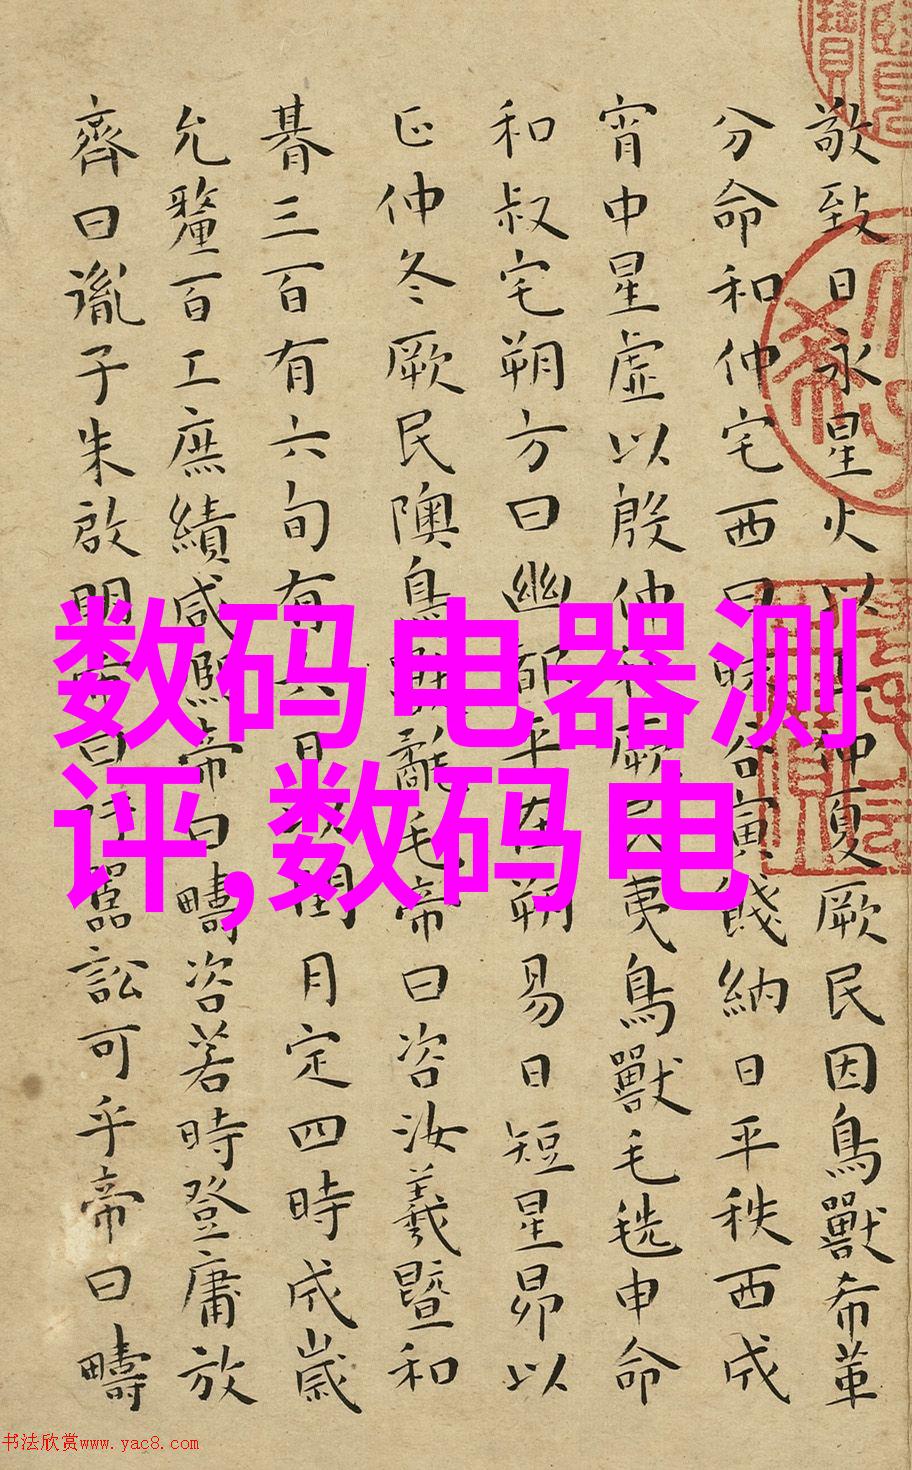 敬致日永星火以正仲夏厥民因鳥獸希革
分命和仲宅西曰昧谷寅餞納日平秩西成
宵中星虛以殷仲秋厥民夷鳥獸毛毨申命
和叔宅朔方曰幽都平在朔易日短星昴以
正仲冬厥民隩鳥獸氄毛帝曰咨汝羲暨和
朞三百有六旬有六日以閏月定四時成歲
允釐百工庶績咸熙帝曰疇咨若時登庸放
齊曰胤子朱啟明帝曰吁嚚訟可乎帝曰疇
数码电器测
评,数码电
书法欣赏www.yac8.com